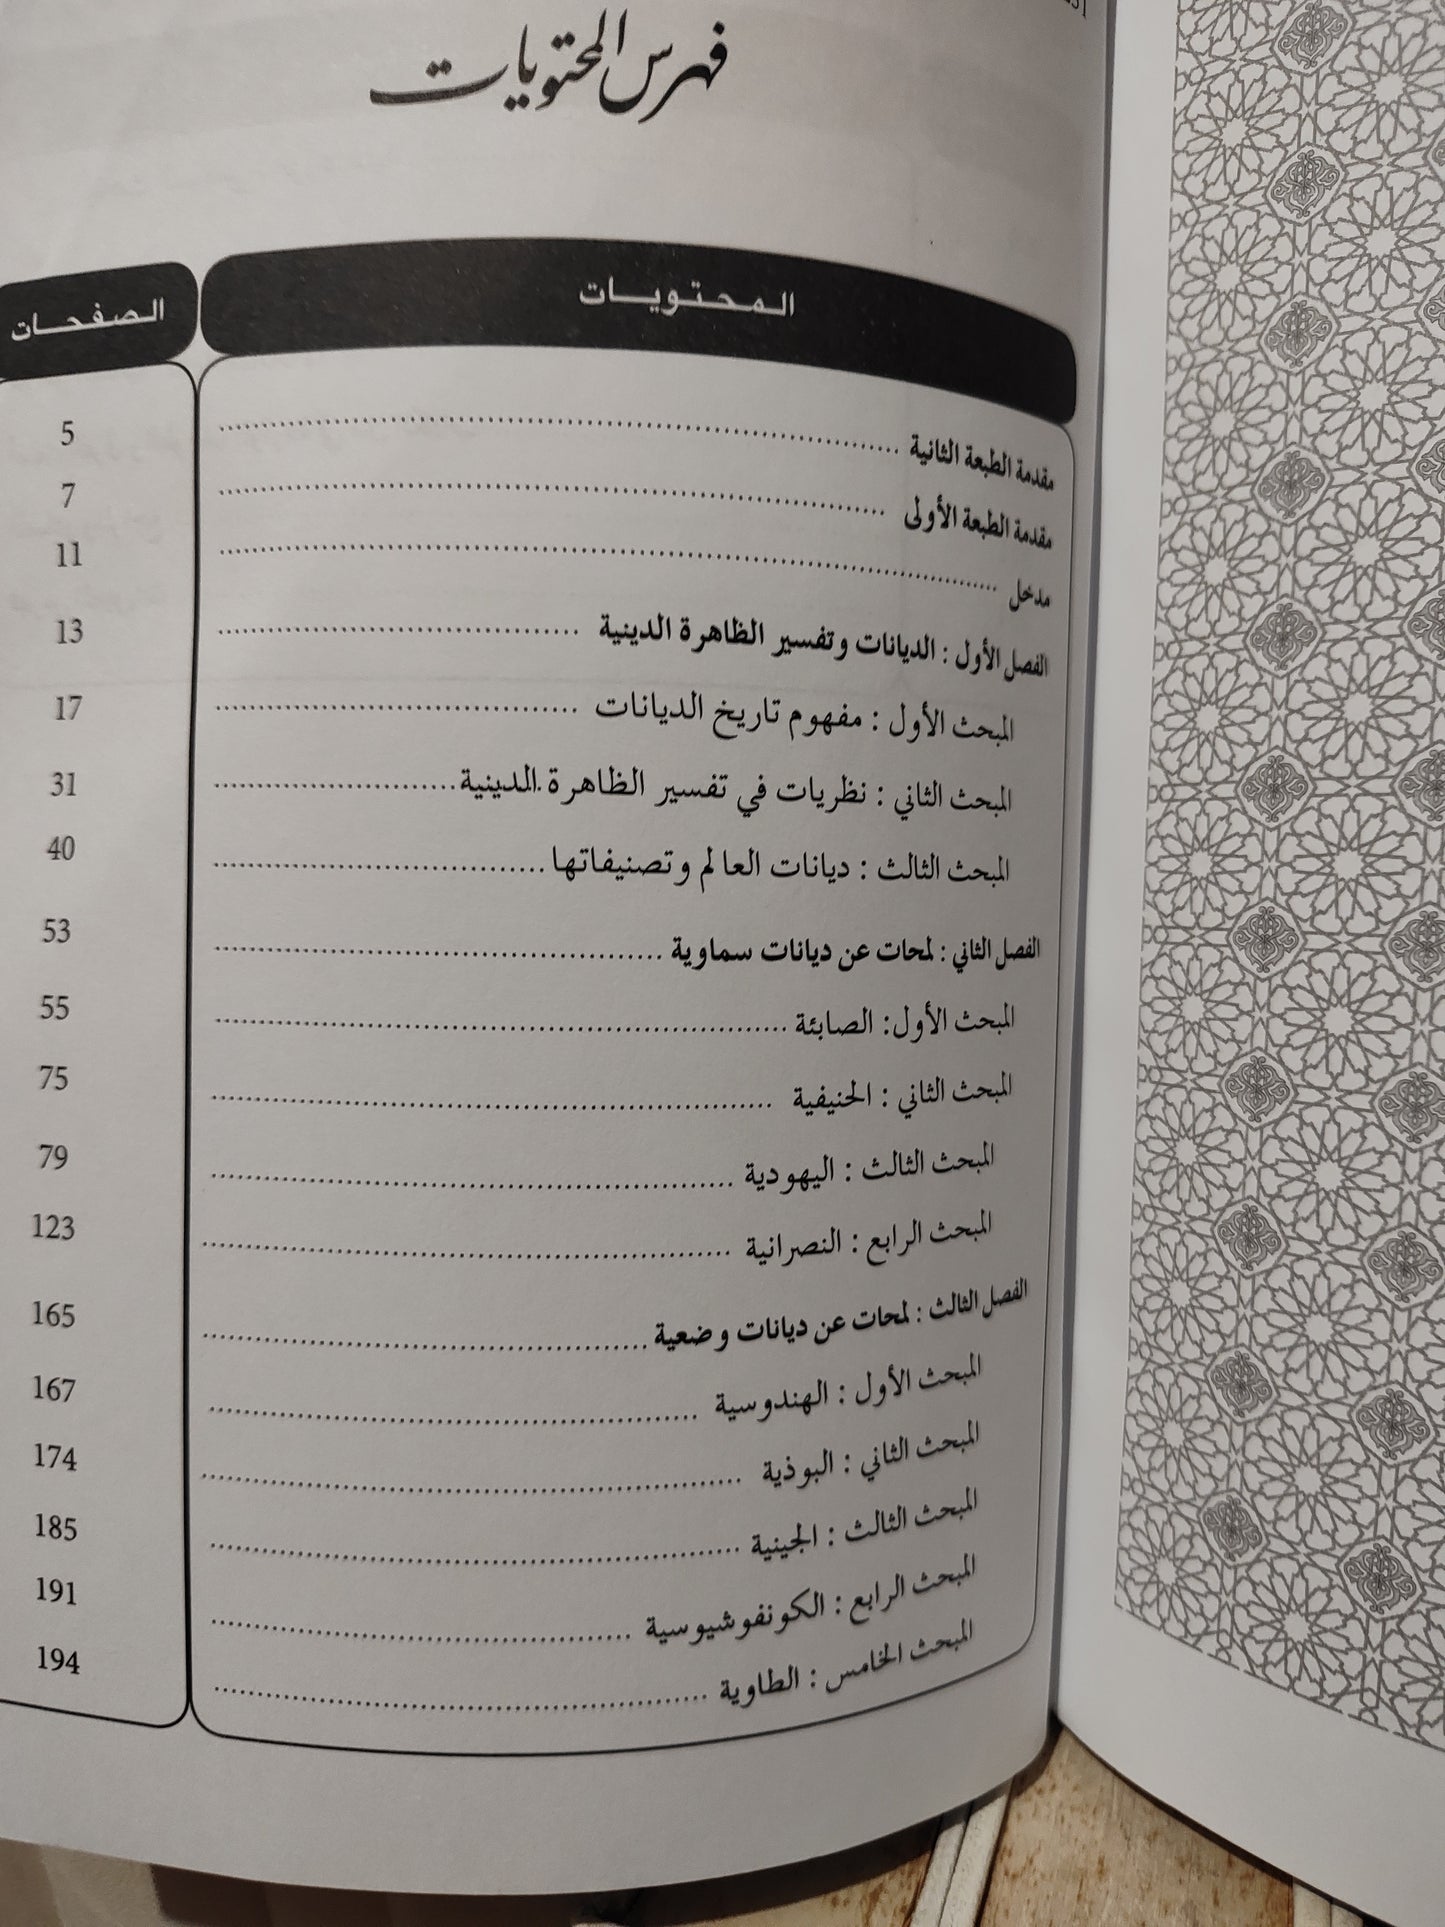 فهرس المحتويات
المحتويات الصفحات
مقدمة الطبعة الثانية 5
مقدمة الطبعة الأولى 7
مدخل 11
الفصل الأول : الديانات وتفسير الظاهرة الدينية 13
المبحث الأول : مفهوم تاريخ الديانات 17
المبحث الثاني : نظريات في تفسير الظاهرة الدينية 31
المبحث الثالث : ديانات العالم وتصنيفاتها 40
الفصل الثاني : لمحات عن ديانات سماوية 53
المبحث الأول: الصابئة 55
المبحث الثاني : الحنيفية 75
المبحث الثالث : اليهودية 79
المبحث الرابع : النصرانية 123
الفصل الثالث : لمحات عن ديانات وضعية 165
المبحث الأول : الهندوسية 167
المبحث الثاني : البوذية 174
المبحث الثالث : الجينية 185
المبحث الرابع : الكونفوشيوسية 191
المبحث الخامس : الطاوية 194